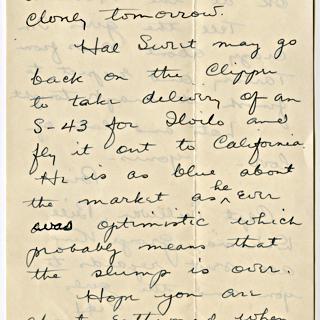 closely tomorrow.
Hal Swirt may go
back on the Clipper
to take delivery of an
S-43 for Iloilo and
fly it out to California.
He is as blue about
the market as he ever
was optimistic which
probably means that
the slump is over.
Hope you are